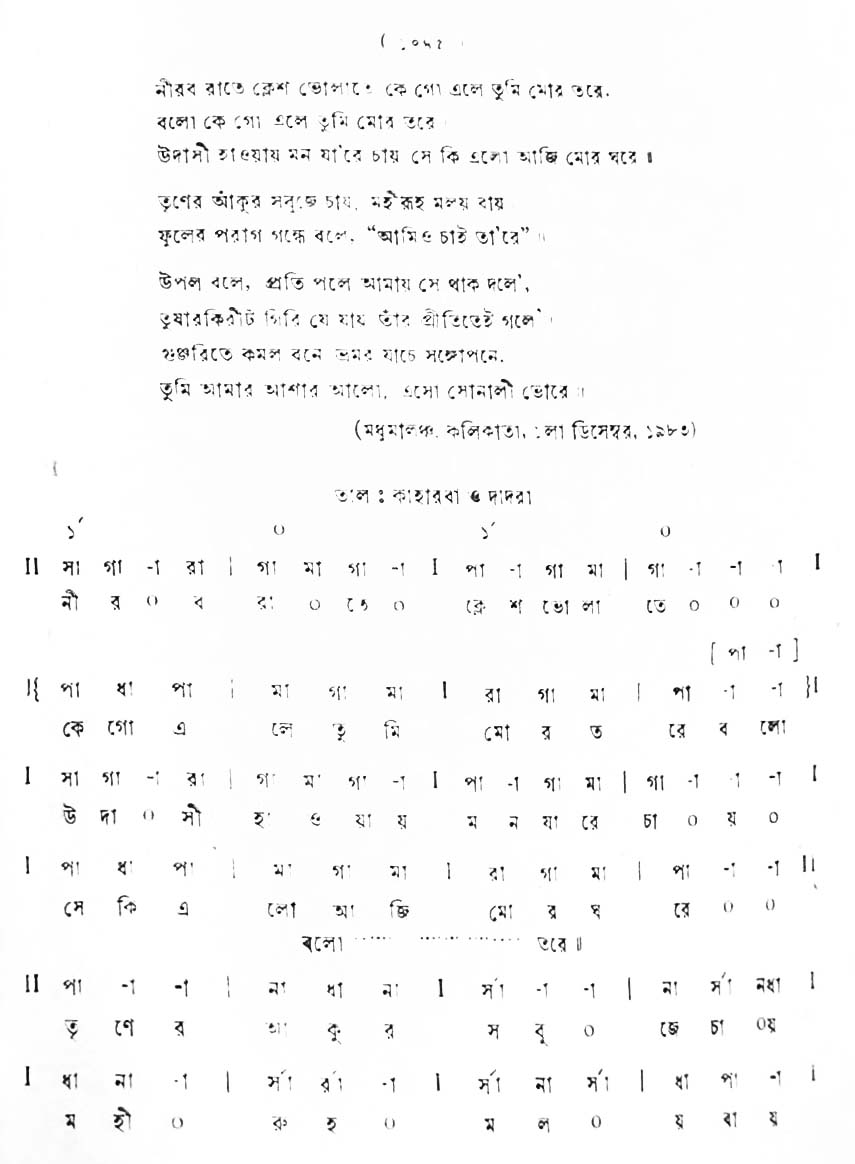 নীরব রাতে ক্লেশ ভোলাতে কে গো এলে তুমি মোর তরে,
বলো কে গো এলে তুমি মোর তরে
উদাসী হাওয়ায় মন যা'রে চায় সে কি এলো আজি মোর ঘরে ॥
তৃণের আঁকুর সবুজে চায়, মহীরূহ মলয় বায়
ফুলের পরাগ গন্ধে বলে, “আমিও চাই তা'রে” ॥
উপল বলে, প্রতি পলে আমায় সে থাক দলে',
তুষারকিরীট গিরি যে যায় তাঁর প্রীতিতেই গলে' ।
গুঞ্জরিতে কমল বনে ভ্রমর যাচে সঙ্গোপনে,
তুমি আমার আশার আলো, এসো সোনালী ভোরে ॥
(মধুমালঞ্চ, কলিকাতা, ১লা ডিসেম্বর, ১৯৮৩)
তাল : কাহারবা ও দাদরা
১´ ০ ১´ ০
II সা গা -া রা | গা মা গা -া I পা -া গা মা | গা -া -া -া I
নী র ০ ব রা ০ তে ০ ক্লে শ ভো লা তে ০ ০ ০
[ পা -া ]
I{ পা ধা পা | মা গা মা I রা গা মা | পা -া -া }I
কে গো এ লে তু মি মো র ত রে ব লো
I সা গা -া রা | গা মা গা -া I পা -া গা মা | গা -া -া -া I
উ দা ০ সী হা ও য়া য় ম ন যা রে চা ০ য় ০
I পা ধা পা | মা গা মা I রা গা মা | পা -া -া II
সে কি এ লো আ জি মো র ঘ রে ০ ০
বলো ...... ............... তরে ॥
II পা -া -া | না ধা না I র্সা -া -া | না র্সা নধা I
তৃ ণে র আ কু র স বু ০ জে চা ০য়
I ধা না -া | র্সা র্রা -া I র্সা না র্সা | ধা পা -া I
ম হী ০ রু হ ০ ম ল ০ য় বা য়